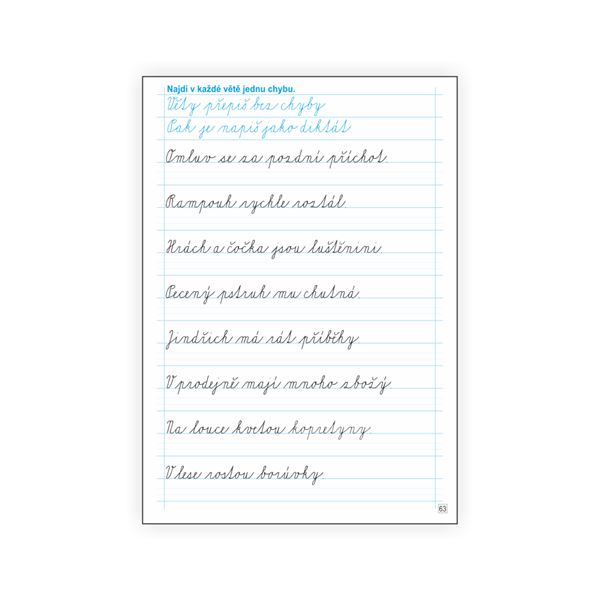 Najdi v každé větě jednu chybu.
Věty přepiš bez chyby
Pak je napiš jako diktát
Omluv se za pozdní příchot.
Rampouh rychle roztál.
Hrách a čočka jsou luštěnini.
Pecený pstruh mu chutná.
Jindřich má rát příběhy.
V prodejně mají mnoho zbožý
Na louce kvetou kopretyny.
V lese rostou borúvky.
63